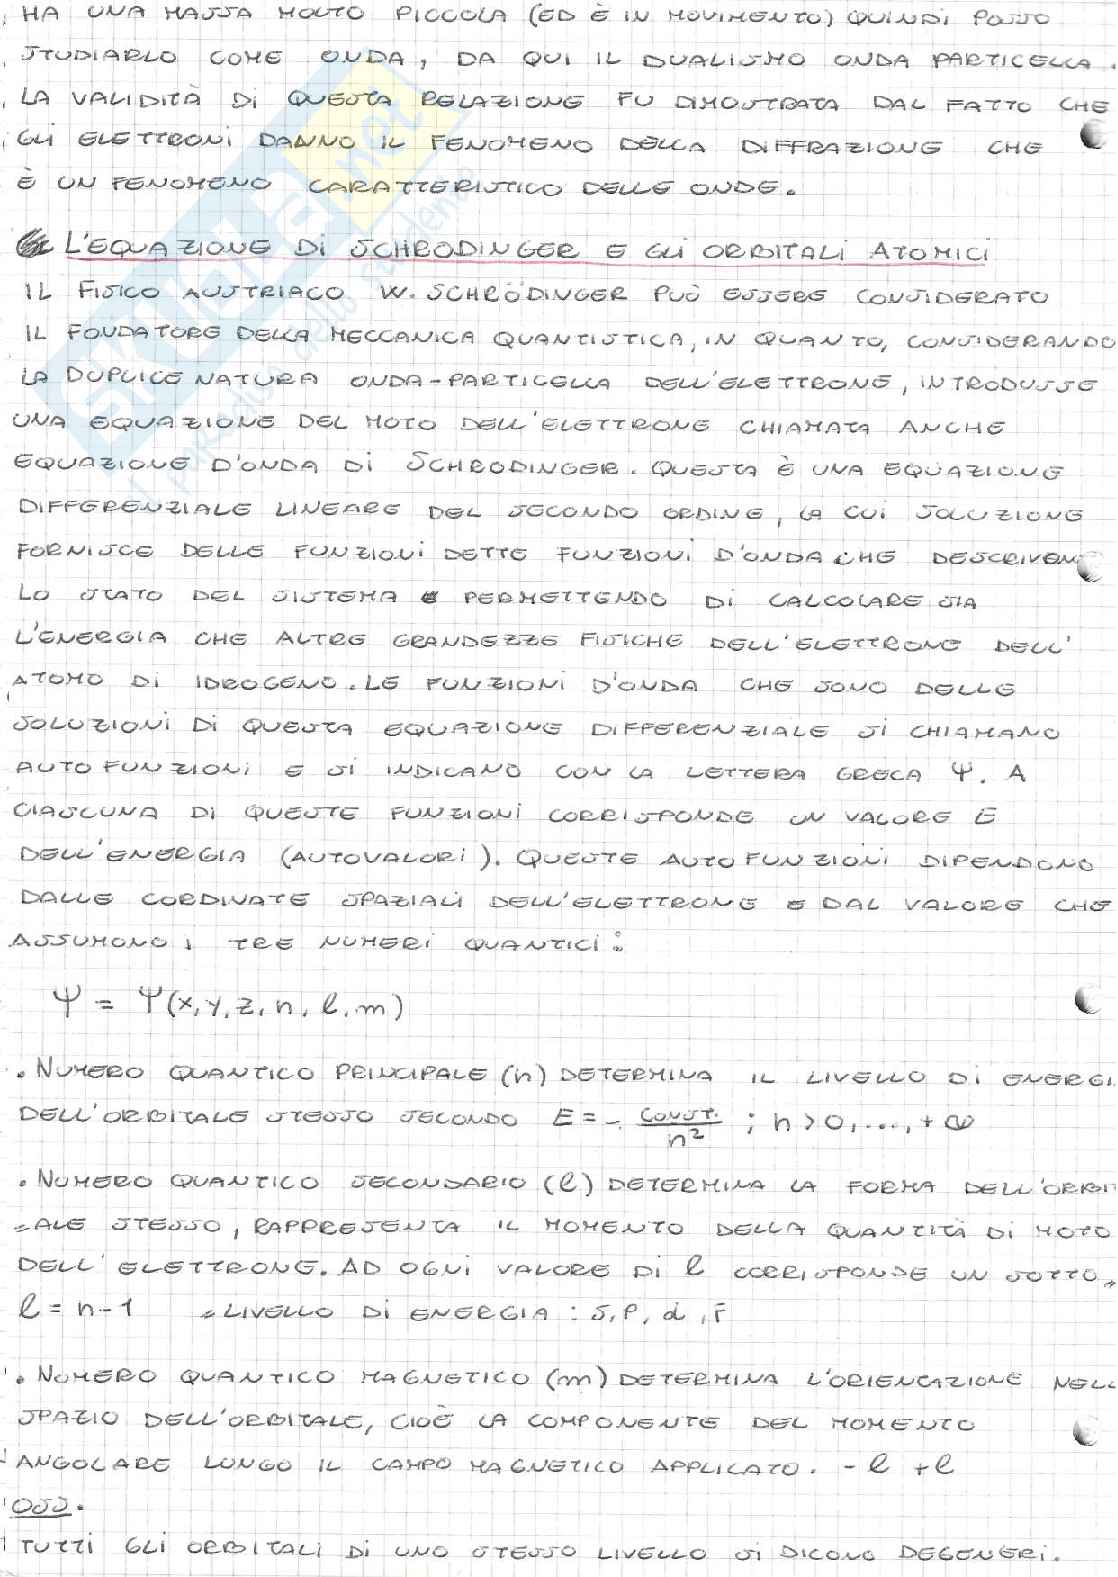 HA UNA MASSA MOLTO PICCOLA (ED È IN MOVIMENTO) QUINDI POSSO
STUDIARLO COME ONDA, DA QUI IL DUALISMO ONDA PARTICELLA.
LA VALIDITÀ DI QUESTA RELAZIONE FU DIMOSTRATA DAL FATTO CHE
GLI ELETTRONI DANNO IL FENOMENO DELLA DIFFRAZIONE CHE
È UN FENOMENO CARATTERISTICO DELLE ONDE.
L'EQUAZIONE DI SCHRODINGER E GLI ORBITALI ATOMICI
IL FISICO AUSTRIACO W. SCHRÖDINGER PUÒ ESSERE CONSIDERATO
IL FONDATORE DELLA MECCANICA QUANTISTICA, IN QUANTO, CONSIDERANDO
LA DUPLICE NATURA ONDA-PARTICELLA DELL'ELETTRONE, INTRODUSSE
UNA EQUAZIONE DEL MOTO DELL'ELETTRONE CHIAMATA ANCHE
EQUAZIONE D'ONDA DI SCHRODINGER. QUESTA È UNA EQUAZIONE
DIFFERENZIALE LINEARE DEL SECONDO ORDINE, LA CUI SOLUZIONE
FORNISCE DELLE FUNZIONI DETTE FUNZIONI D'ONDA CHE DESCRIVEN
LO STATO DEL SISTEMA PERMETTENDO DI CALCOLARE SIA
L'ENERGIA CHE ALTRE GRANDEZZE FISICHE DELL'ELETTRONE DELL'
ATOMO DI IDROGENO. LE FUNZIONI D'ONDA CHE SONO DELLE
SOLUZIONI DI QUESTA EQUAZIONE DIFFERENZIALE SI CHIAMANO
AUTOFUNZIONI E SI INDICANO CON LA LETTERA GRECA Ψ. A
CIASCUNA DI QUESTE FUNZIONI CORRISPONDE UN VALORE E
DELL'ENERGIA (AUTOVALORI). QUESTE AUTOFUNZIONI DIPENDONO
DALLE CORDINATE SPAZIALI DELL'ELETTRONE E DAL VALORE CHE
ASSUMONO I TRE NUMERI QUANTICI:
Ψ = Ψ(x, y, z, n, l, m)
. NUMERO QUANTICO PRINCIPALE (n) DETERMINA IL LIVELLO DI ENERGI
DELL'ORBITALE STESSO SECONDO E = - CONST. / n² ; n > 0, ..., +∞
. NUMERO QUANTICO SECONDARIO (l) DETERMINA LA FORMA DELL'ORBI
=ALE STESSO, RAPPRESENTA IL MOMENTO DELLA QUANTITÀ DI MOTO
DELL'ELETTRONE. AD OGNI VALORE DI l CORRISPONDE UN SOTTO=
l = n-1 =LIVELLO DI ENERGIA : S, P, d, F
. NUMERO QUANTICO MAGNETICO (m) DETERMINA L'ORIENTAZIONE NELL
SPAZIO DELL'ORBITALE, CIOÈ LA COMPONENTE DEL MOMENTO
ANGOLARE LUNGO IL CAMPO MAGNETICO APPLICATO. -l +l
OSS.
TUTTI GLI ORBITALI DI UNO STESSO LIVELLO SI DICONO DEGENERI.